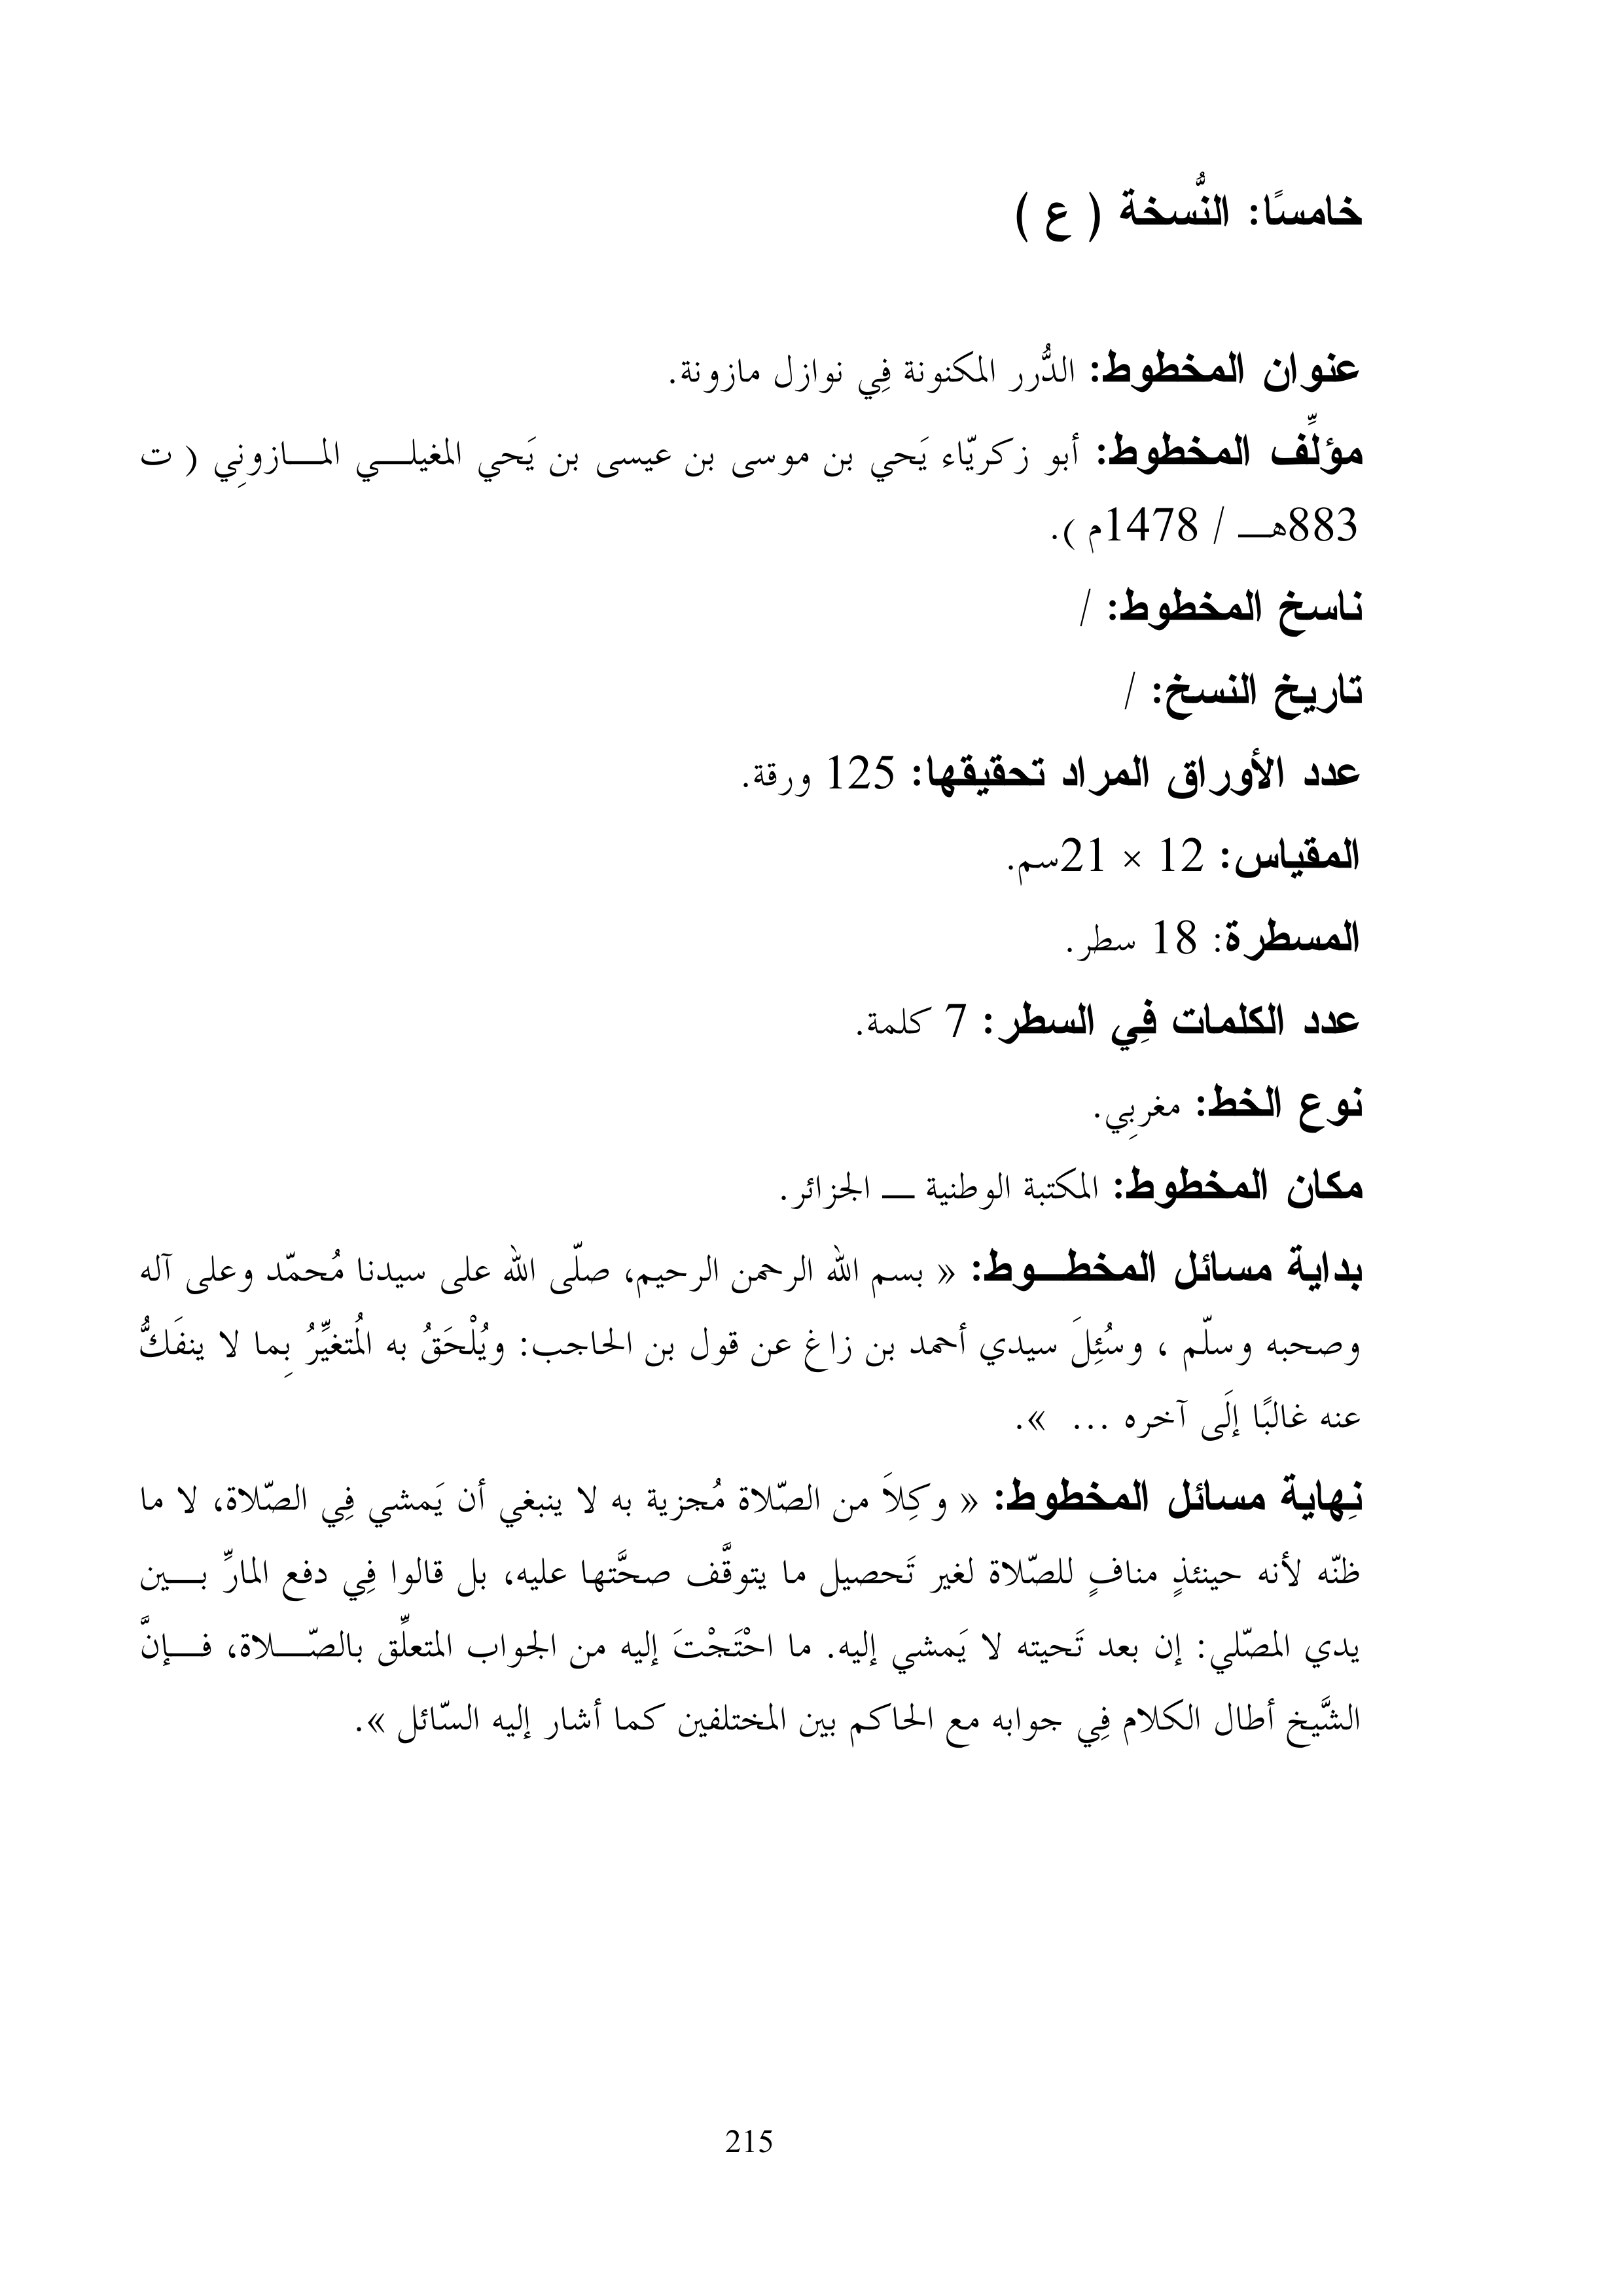 خامسًا: النُّسخة ( ع )
عنوان المخطوط: الدُّرر المكنونة فِي نوازل مازونة.
مؤلِّف المخطوط: أبو زكريّاء يَحي بن موسى بن عيسى بن يَحي المغيلـــي المـــازونِي ( ت
883هــ / 1478م ).
ناسخ المخطوط: /
تاريخ النسخ: /
عدد الأوراق المراد تحقيقها: 125 ورقة.
المقياس: 12 × 21سم.
المسطرة: 18 سطر.
عدد الكلمات فِي السطر: 7 كلمة.
نوع الخط: مغربِي.
مكان المخطوط: المكتبة الوطنية ــ الجزائر.
بداية مسائل المخطـــوط: « بسم الله الرحمن الرحيم، صلّى الله على سيدنا مُحمّد وعلى آله
وصحبه وسلّم ، وسُئِلَ سيدي أحمد بن زاغ عن قول بن الحاجب: ويُلْحَقُ به المُتغيِّرُ بِما لا ينفَكُّ
عنه غالبًا إلَى آخره ... ».
نِهاية مسائل المخطوط: « وكِلاَ من الصّلاة مُجزية به لا ينبغي أن يَمشي فِي الصّلاة، لا ما
ظنّه لأنه حينئذٍ منافٍ للصّلاة لغير تَحصيل ما يتوقَّف صحَّتها عليه، بل قالوا فِي دفع المارِّ بـــين
يدي المصّلي: إن بعد تَحيته لا يَمشي إليه. ما احْتَجْتَ إليه من الجواب المتعلِّق بالصّـــلاة، فـــإنَّ
الشَّيخ أطال الكلام فِي جوابه مع الحاكم بين المختلفين كما أشار إليه السّائل ».
215